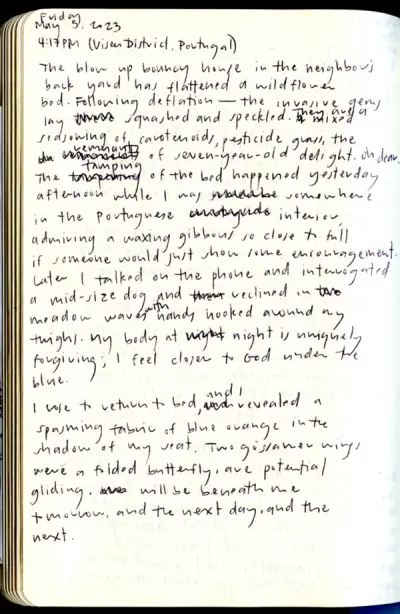 Friday
May 5, 2023
4:17PM (Viseu District, Portugal)
The blow up bouncy house in the neighbor's
back yard has flattened a wildflower
bed. Following deflation — the invasive gems
lay squashed and speckled. They are a mixed
seasoning of carotenoids, pesticide grass, the
remnants of seven-year-old delight. Oh dear.
The tamping of the bed happened yesterday
afternoon while I was somewhere
in the Portuguese interior,
admiring a waxing gibbous so close to full
if someone would just show some encouragement.
Later I talked on the phone and interrogated
a mid-size dog and reclined in
meadow waves with hands hooked around my
thighs. My body at night is uniquely
forgiving; I feel closer to God under the
blue.
I rose to return to bed, and I revealed a
spasming fabric of blue orange in the
shadow of my seat. Two gossamer wings
were a folded butterfly, are potential
gliding, will be beneath me
tomorrow, and the next day, and the
next.